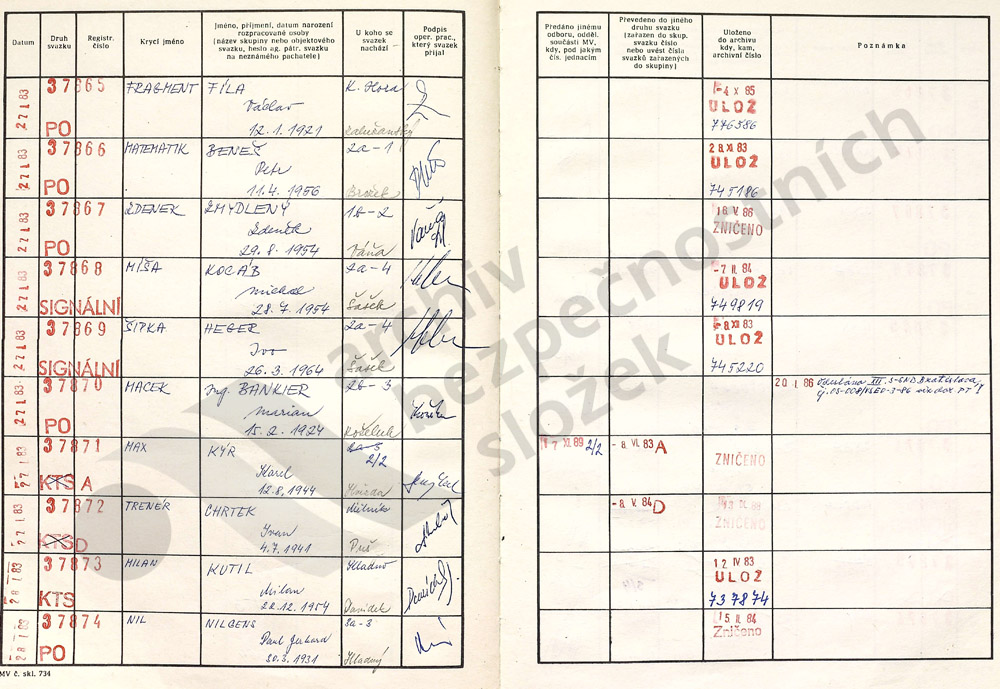 Datum
Druh svazku
Registr. číslo
Krycí jméno
Jméno, příjmení, datum narození
rozpracované osoby
(název skupiny nebo objektového
svazku, heslo ag. pátr. svazku
na neznámého pachatele)
U koho se
svazek
nachází
Podpis
oper. prac.,
který svazek
přijal
Předáno jinému
odboru, odděl.
součásti MV,
kdy, pod jakým
čís. jednacím
Převedeno do jiného
druhu svazku
(zařazen do skup.
svazku číslo
nebo uvést čísla
svazků zařazených
do skupiny)
Uloženo
do archivu
kdy, kam,
archivní číslo
Poznámka
27 I 83 37865 FRAGMENT FÍLA K. Hora - 4 X 85
Václav ULOŽ
PO 12.1.1921 776586
27 I 83 37866 MATEMATIK BENEŠ 2a-1 28. XI 83
Petr ULOŽ
PO 11.4.1956 Brožek 745186
27 I 83 37867 ZDENEK ZMYDLENÝ 1b-2 16. V. 86
Zdeněk ZNIČENO
PO 29.8.1954 Váňa
27 I 83 37868 MÍŠA KOCÁB 2a-4 -7 II. 84
Michal ULOŽ
SIGNÁLNÍ 28.7.1954 Šášek 749819
27 I 83 37869 ŠIPKA HEGER 2a-4 -8 XII 83
Ivo ULOŽ
SIGNÁLNÍ 26.3.1964 Šášek 745220
27 I 83 37870 MACEK Ing. BANKIER 2b-3 20. I. 86 Odesláno XII. S-SNB Bratislava
Marian
PO 15.2.1924 Koželuh
27 I 83 37871 MAX KÝR 2/2 17 XI. 89 2/2 - 8. VI. 83 A ZNIČENO
Karel
KTS A 12.8.1944
27 I 83 37872 TRENÉR CHRTEK Mělník - 8. V. 84 D
Ivan ZNIČENO
KTS D 4.7.1941
28 I 83 37873 MILAN KUTIL Kladno 12 IV 83
Milan ULOŽ
KTS 22.12.1954 Davídek 737874
28 I 83 37874 NIL NILGENS 3a-3 15. II. 84
Paul Gerhard Zničeno
PO 30.3.1931 Hladný
MV č. skl. 734
archiv
bezpečnostních
složek